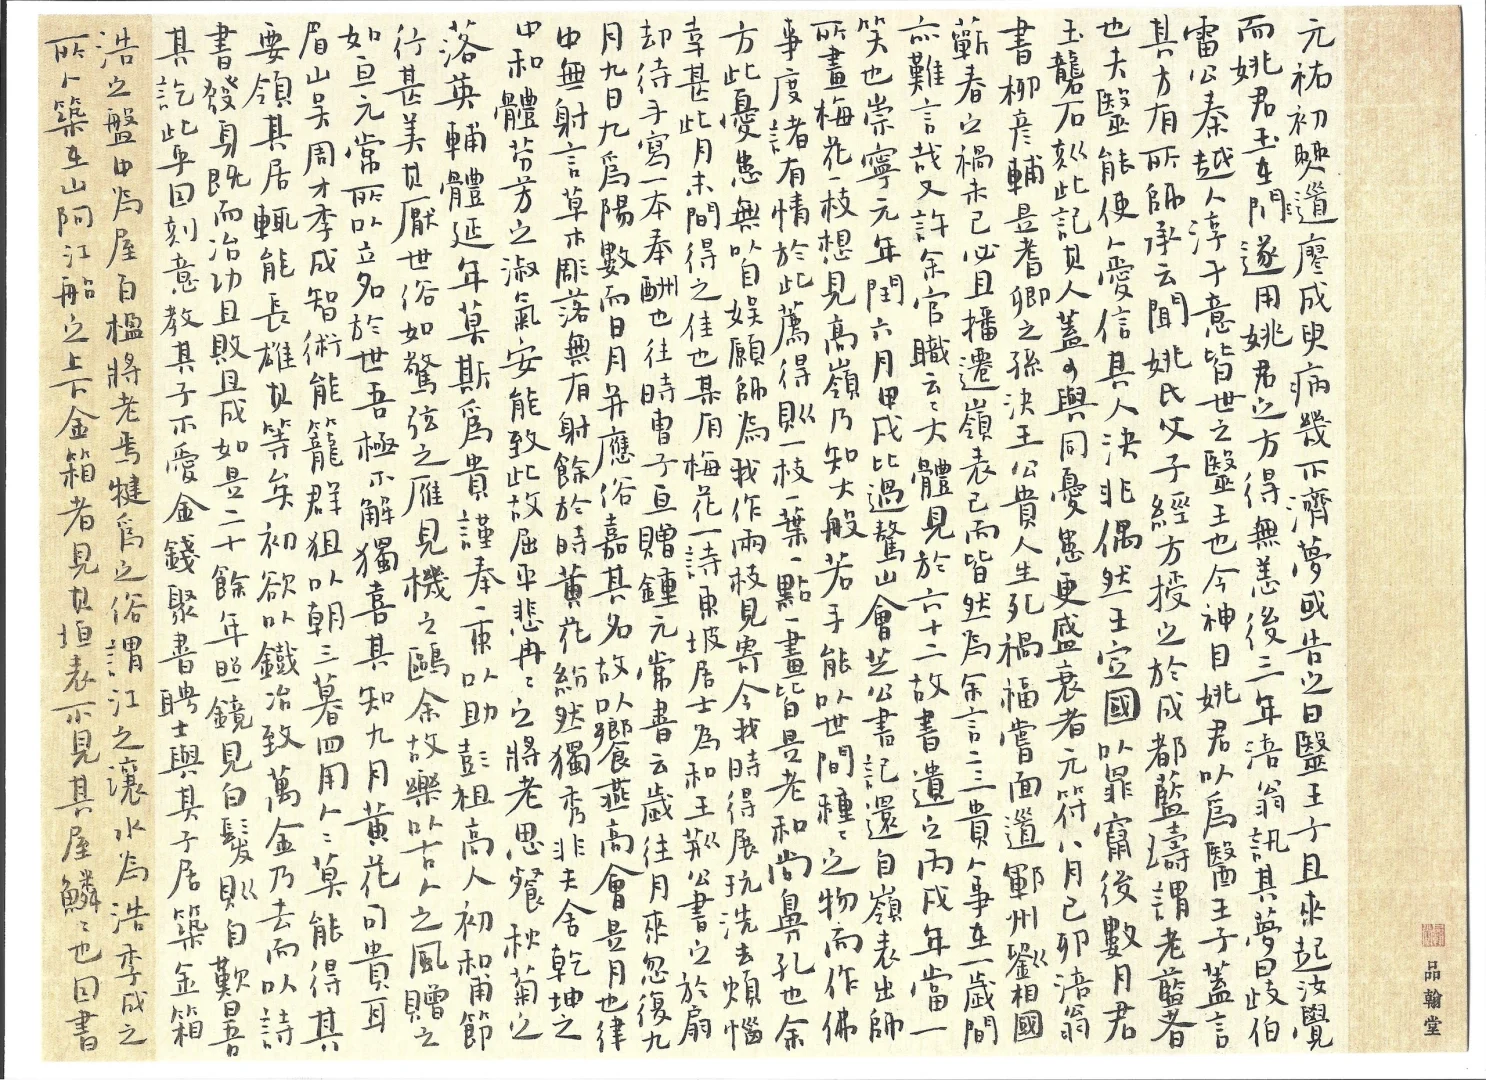 元祐初興道廖成叟病幾不濟夢或告之曰醫王子且來起汝覺
而姚君玉在門遂用姚君之方得無恙後三年涪翁訊其夢曰歧伯
雷公秦越人淳于意皆世之醫王也今神目姚君以為醫王子蓋言
其方有所師承云聞姚氏父子經方授之於成都藍濤謂老藍者
也夫醫能使人愛信其人決非偶然王宣國以罪竄後數月君
玉礱石刻此記其人蓋可與同憂患更盛衰者元符八月己卯涪翁
書柳彦輔是耆卿之孫決王公貴人生死禍福嘗面道鄆州劉相國
蘄春之禍未已必且播遷嶺表已而皆然為余言二三貴人事在一歲間
亦難言哉又許余官職云云大體見於六十二故書遺之丙戌年當一
笑也崇寧元年閏六月甲戌比過鷲山會芝公書記還自嶺表出師
所畫梅花一枝想見高嶺乃知大般若手能以世間種種之物而作佛
事度諸有情於此薦得則一枝一葉一點一畫皆是老和尚鼻孔也余
方此憂患無以自娛願師為我作兩枝見寄令我時得展玩洗去煩惱
幸甚此月末間得之佳也某有梅花一詩東坡居士為和王荊公書之於扇
却待手寫一本奉酬也往時曹子亘贈鍾元常書云歲往月來忽復九
月九日九為陽數而日月并應俗嘉其名故以饗燕高會是月也律
中無射言草木彫落無有射餘於時黃花紛然獨秀非夫含乾坤之
中和體芬芳之淑氣安能致此故屈平悲冉冉之將老思飡秋菊之
落英輔體延年莫斯為貴謹奉一束以助彭祖高人初和甫節
行甚美其厭世俗如驚弦之雁見機之鷗余故樂以古人之風贈之
如亘元常所以立名於世吾極不解獨喜其知九月黃花可貴耳
眉山吴周才季成智術能籠群狙以朝三暮四用人人莫能得其
要領其居輒能長雄其等矣初欲以鐵冶致萬金乃去而以詩
書發身既而冶功且敗且成如是二十餘年照鏡見白髮則自歎曩
其訖此乎因刻意教其子不愛金錢聚書聘士與其子居築金箱
浩之盤中為屋百楹將老焉犍為之俗謂江之瀼水為浩季成之
所卜築在山阿江船之上下金箱者見其垣表不見其屋鱗鱗也因書
品翰堂